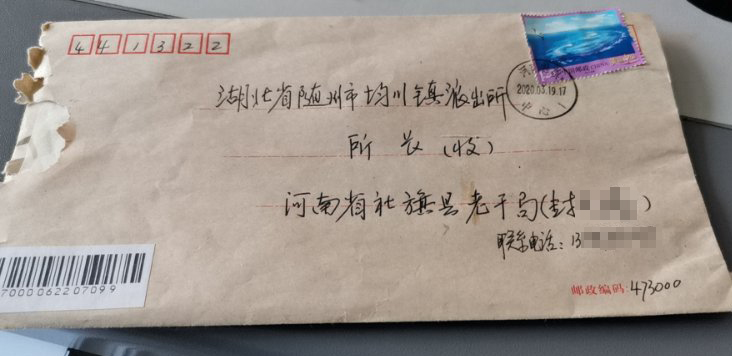 441322
2020.03.19.17
中心
湖北省随州市均川镇派出所
所长(收)
河南省社旗县老干局(封
联系电话:13
7000062207099
邮政编码:473000